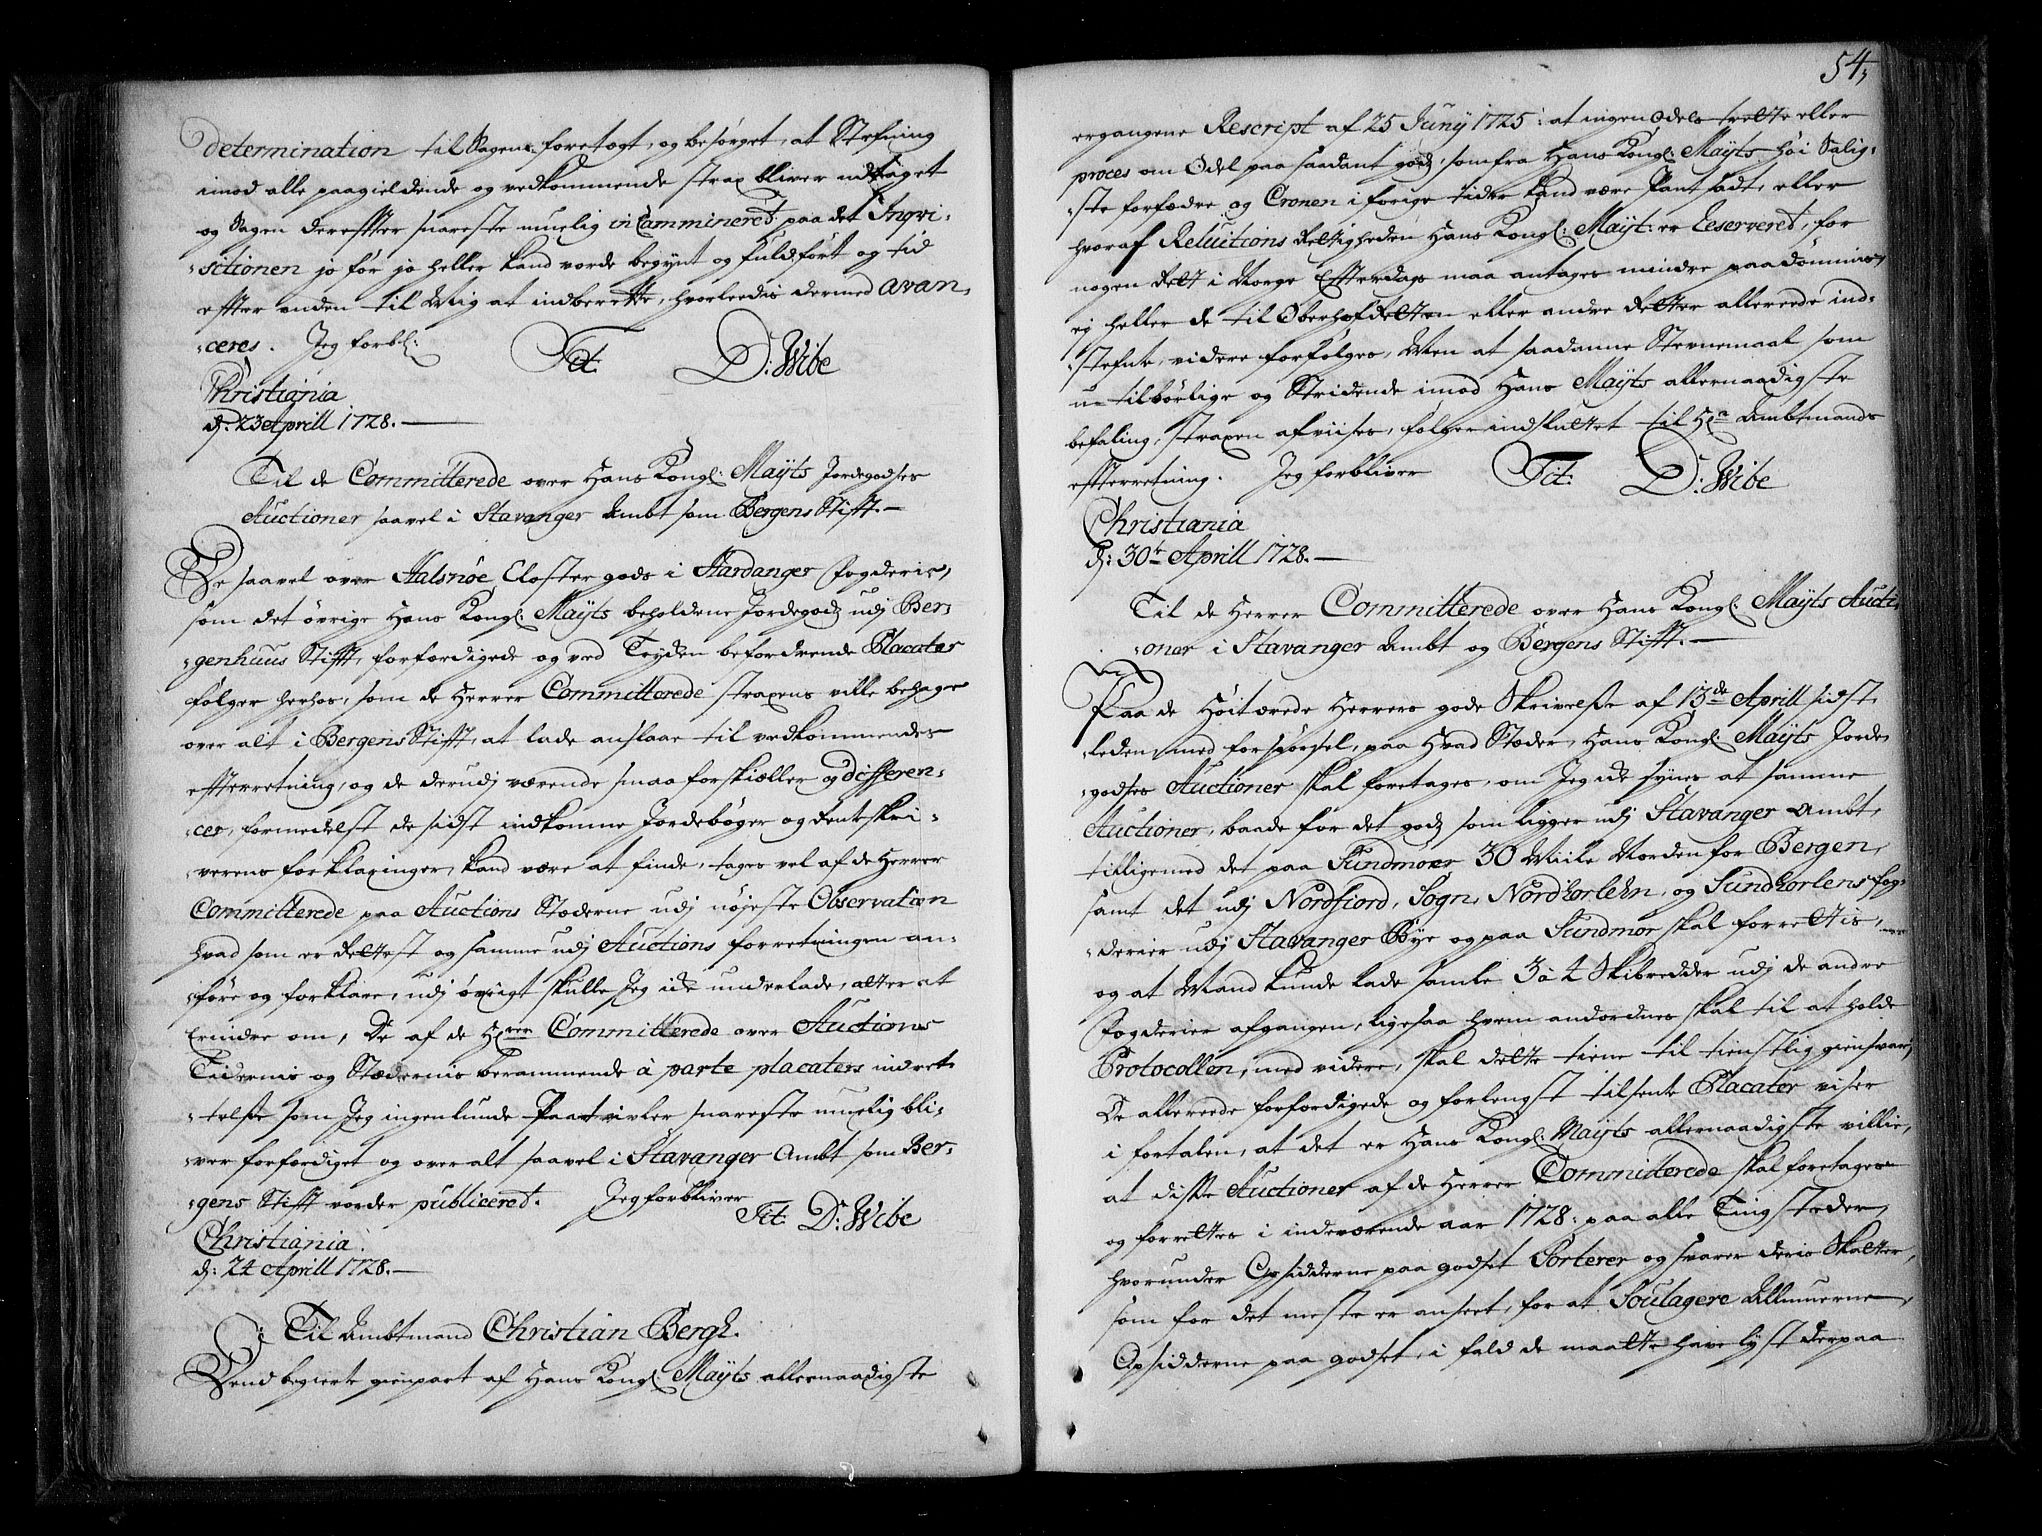 determination til Sagens foretogt, og besörget, at Stefning
imod alle paagieldende og vedkommende strax bliver udtaget
og Sagen derefter snareste muelig examineret paa det Inqvi-
sitionen jo för jo heller kand vorde begynt og fuldfört og tid
effter anden til Mig at indberette, hvorledis dermed avan-
ceres. Jeg forbl: Tit. D: Wibe
Christiania
d: 23 Aprill 1728.
Til de Committerede over Hans Kongl: Mayts Jordegodses
Auctioner saavel i Stavanger Ambt som Bergens Stifft.
De saavel over Halsnöe Closter gods i Hardanger Fogderie,
som det övrige Hans Kongl: Mayts beholdene Jordegodz udj Ber-
genhuus Stifft, forfærdigede og ved Trÿken befordrende Placater
fölger herhos, som de Herrer Committerede straxens ville behage
over alt i Bergens Stifft, at lade anslaae til vedkommendes
effterretning, og de derudj værende smaa forskiæller og differen-
cer, formedelst de sidst indkomne Jordeböger og Renteskri-
verens forklaringer, kand være at finde, tages vel af de Herrer
Committerede paa Auctions Stæderne udj nöjeste Observation
hvad som er Rettest og samme udj Auctions forretningen an-
före og forklare, udj övrigt skulle Jeg icke underlade, efter at
erindre om, De af de Hrrer Committerede over Auctions
Tidernis og Stædernis berammende à parte placaters indret-
telsse som Jeg ingenlunde Paatvivler snareste muelig bli-
ver forfærdiget og over alt saavel i Stavanger Ambt som Ber-
gens Stifft vorder publiceret. Jeg forbliver
Tit. D: Wibe
Christiania
d: 24 Aprill 1728.
Til Ambtmand Christian Bergh.
Send begierte gienpart af Hans Kongl: Mayts allernaadigste
54,
ergangene Rescript af 25 Junÿ 1725: at ingen Odels trette eller
proces om Odel paa saadant godz, som fra Hans Kongl: Mayts höi Salig-
ste forfædre og Cronen i forige tider kand være Pantsadt, eller
hvoraf Reluitions Rettigheden Hans Kongl: Mayt: er Reserveret, for
nogen Rett i Norge Effterdags maa antages mindre paadömmis,
ej heller de til Oberhofretten eller andre Retter allereede ind-
stefnte, videre forfölges, Men at saadanne Stevnemaal som
u-tilbörlige og Stridende imod Hans Mayts allernaadigste
befaling, straxen afviises, fölger indsluttet til Hr. Ambtmands
effterretning. Jeg forbliver Tit. D: Wibe
Christiania
d: 30t Aprill 1728.
Til de Herrer Committerede over Hans Kongl: Mayts Aucti-
oner i Stavanger Ambt og Bergens Stifft.
Paa de Höitærede Herrers gode Skrivelsse af 13de Aprill sidst-
leden, med forspörsel, paa hvad Stæder, Hans Kongl: Mayts Jorde-
godses Auctioner skal foretages, om Jeg icke synes at samme
Auctioner, baade for det godz som ligger udj Stavanger Ambt,
tilligemed det paa Sundmoer 30 Miile Norden for Bergen,
samt det udj Nordfiord, Sogn, Nordhorlehn, og Sundhorlens fog-
derier udj Stavanger Bÿe og paa Sundmör skal forrettis,
og at Mand kunde lade samle 3 à 4 Skibredder udj de andre
Fogderier afgangen, ligesaa hvem andordnes skal til at holde
Protocollen, med videre, skal dette tiene til tienstlig giensvar,
De allereede forfærdigede og forlengst tilsente Placater viser
i fortalen, at det er Hans Kongl: Mayts allernaadigste villie,
at disse Auctioner af de Herrer Committerede skal foretages
og forrettes i indeværende aar 1728: paa alle Tingstæder,
hvorunder Opsidderne paa godset Sorterer og svarer deris Skatter,
som for det meste er anseet, for at Soulagere Allmuerne,
Opsidderne paa godset, i fald de maatte have lyst derpaa